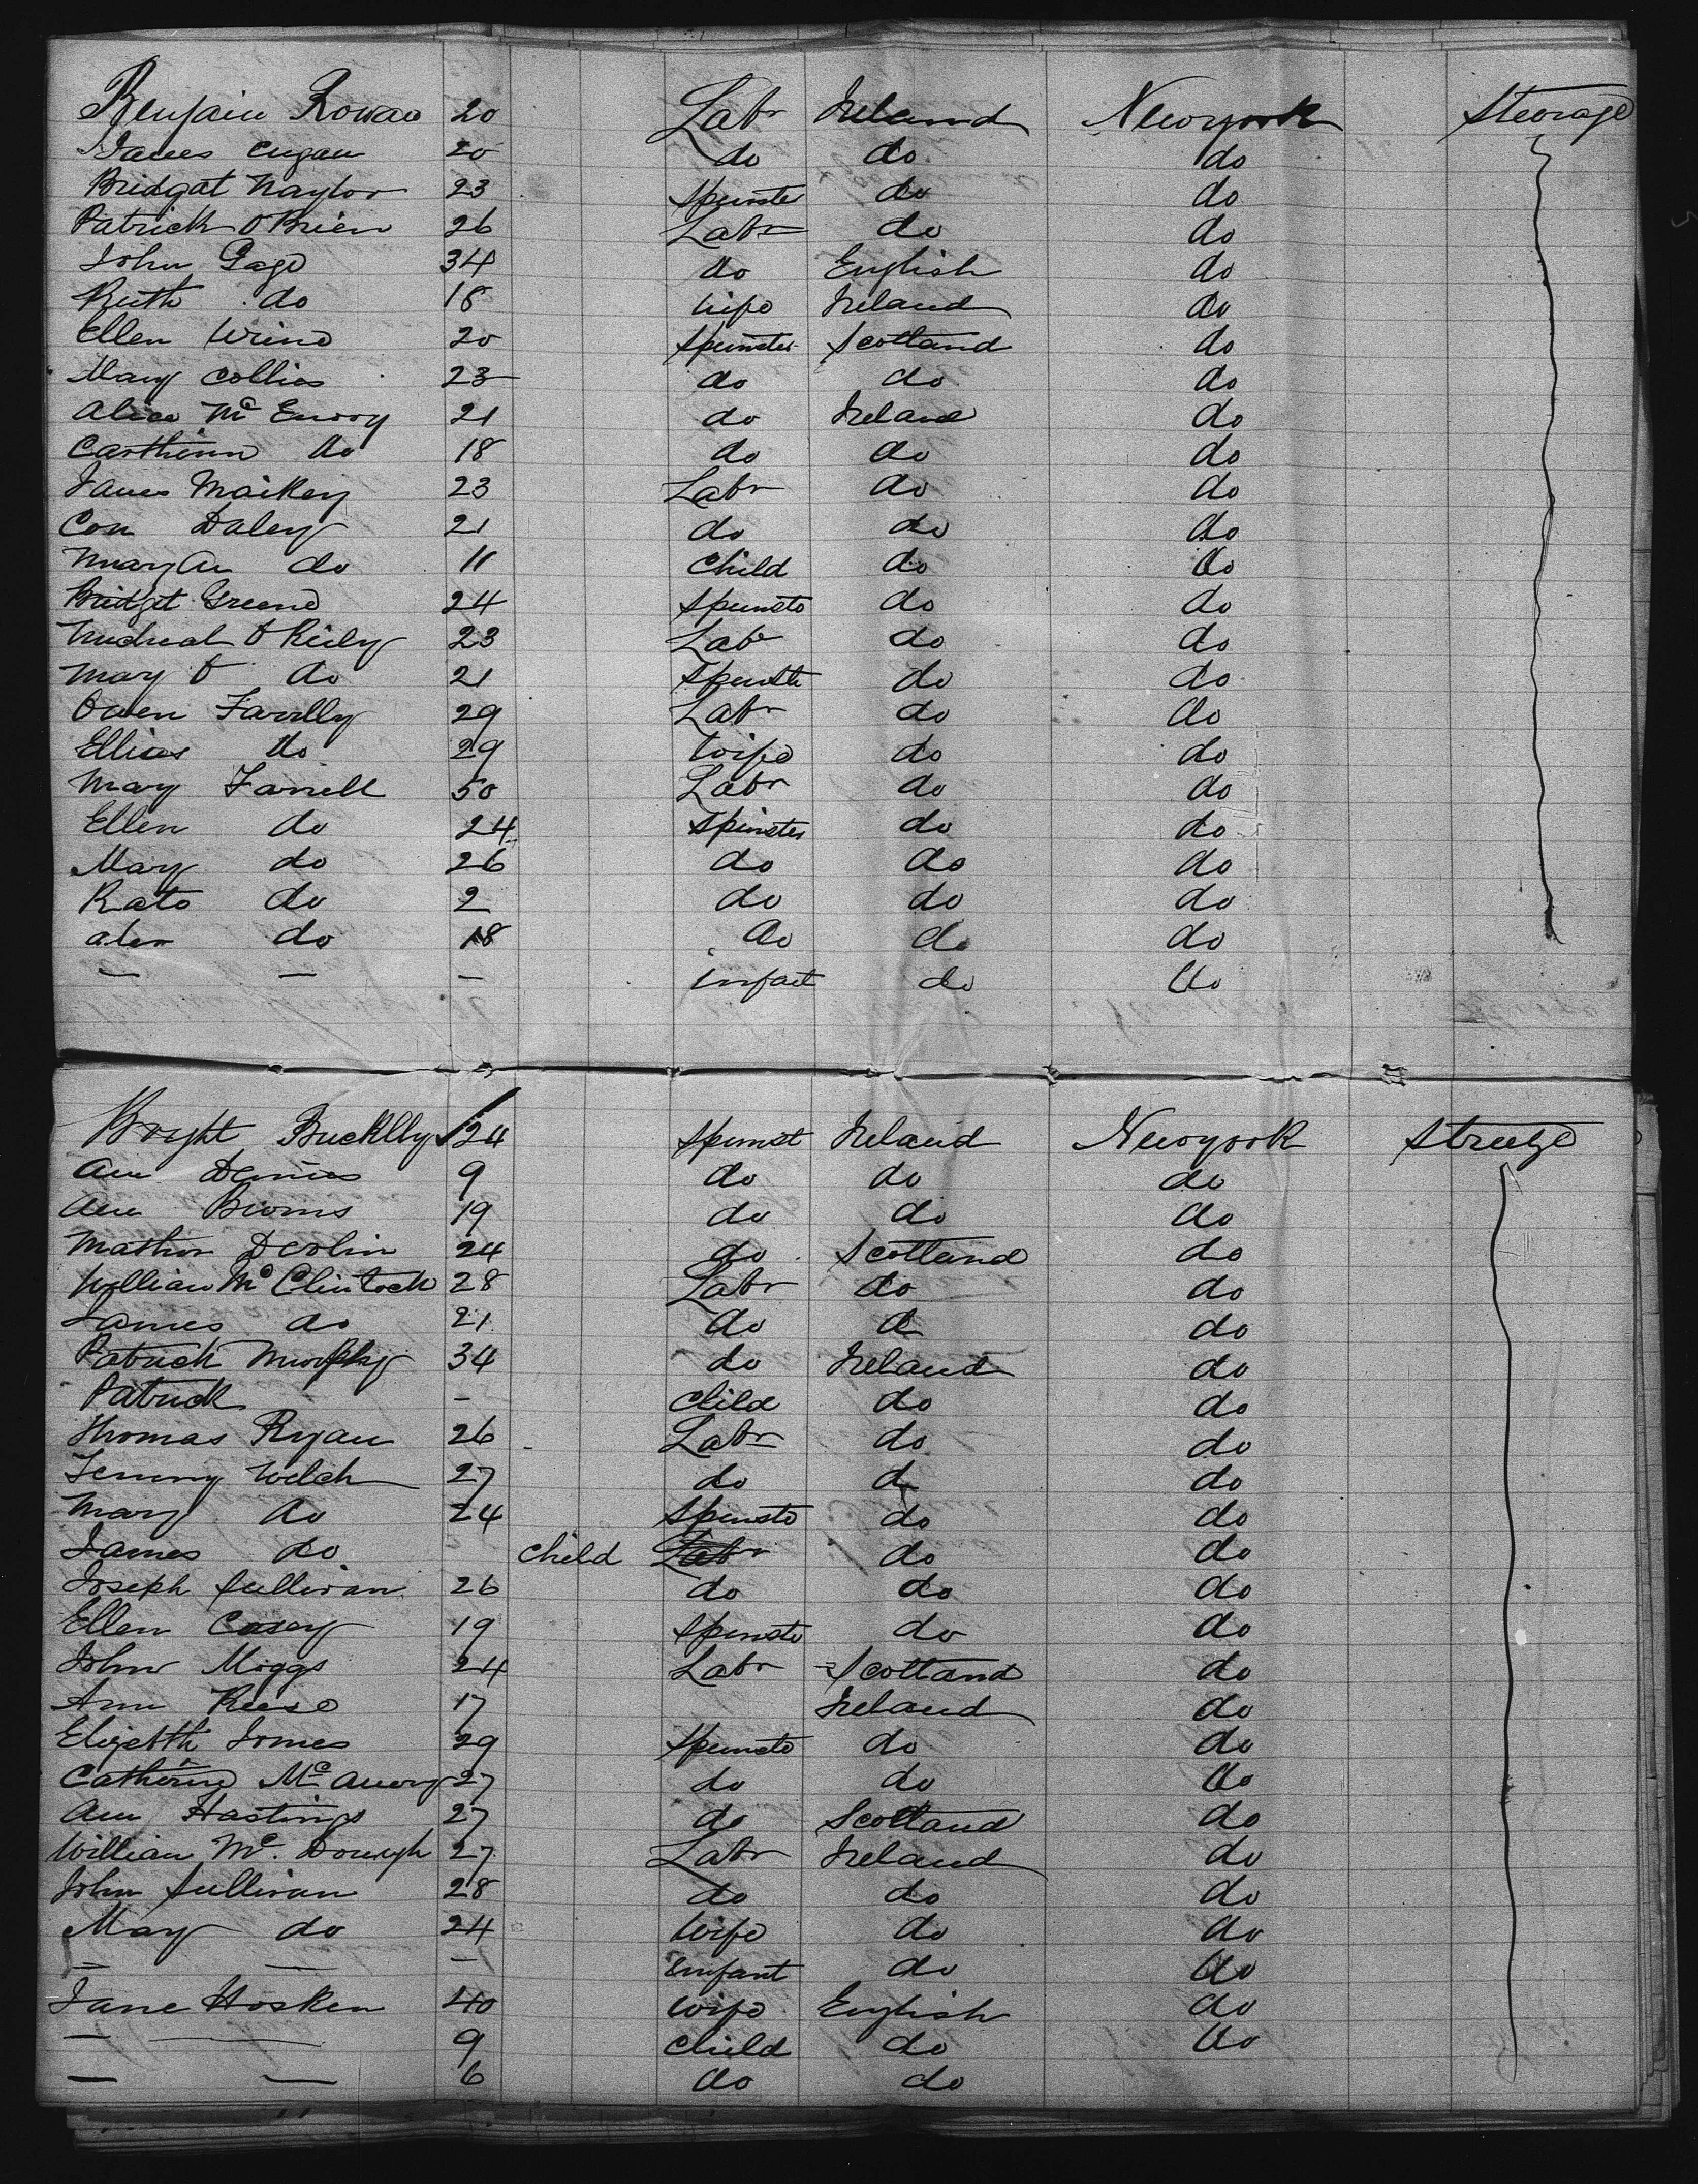 Benjain Rowan 20 Labr Ireland Newyork Steorage
James Cugan 20 do do do
Bridgat Naylor 23 Spinster do do
Patrick O Brien 26 Labr do do
John Gage 34 do English do
Ruth do 18 wife Ireland do
Ellen 20 Spinster Scotland do
Mary Collins 23 do do do
Alice Mc Enroy 21 do Ireland do
Cartherin do 18 do do do
James Maikey 23 Labr do do
Con Daley 21 do do do
Mary An do 11 Child do do
Bridget Greene 24 Spinste do do
Micheal O Reily 23 Labr do do
Mary O do 21 Spinste do do
Owen Farrlly 29 Labr do do
Ellias do 29 Wife do do
Mary Farrell 50 Labr do do
Ellen do 24 Spinster do do
Mary do 26 do do do
Kate do 2 do do do
alex do 18 do do do
— — — infact do do
Bryht Bucklly 24 Spinst Ireland Newyork Streege
Ann Dennis 9 do do do
Ann Browns 19 do do do
Mathew Devlin 24 do Scotland do
William Mc Clintock 28 Labr do do
James do 21 do d do
Patrick Murphy 34 do Ireland do
Patrick — Child do do
Thomas Ryan 26 Labr do do
Jemmy Welch 27 do d do
Mary do 24 Spinste do do
James do Child Labr do do
Joseph Sullivan 26 do do do
Ellen Casey 19 Spinste do do
John Miggs 24 Labr Scotland do
Ann Reese 17 Ireland do
Elizebth Jones 29 Spinste do do
Catherine Mc Avery 27 do do do
Ann Hastings 27 do Scotland do
William Mc. Donugh 27 Labr Ireland do
John Sullivan 28 do do do
May do 24 Wife do do
— — — Enfant do do
Jane Hosken 40 Wife English do
— — 9 Child do do
— — 6 do do